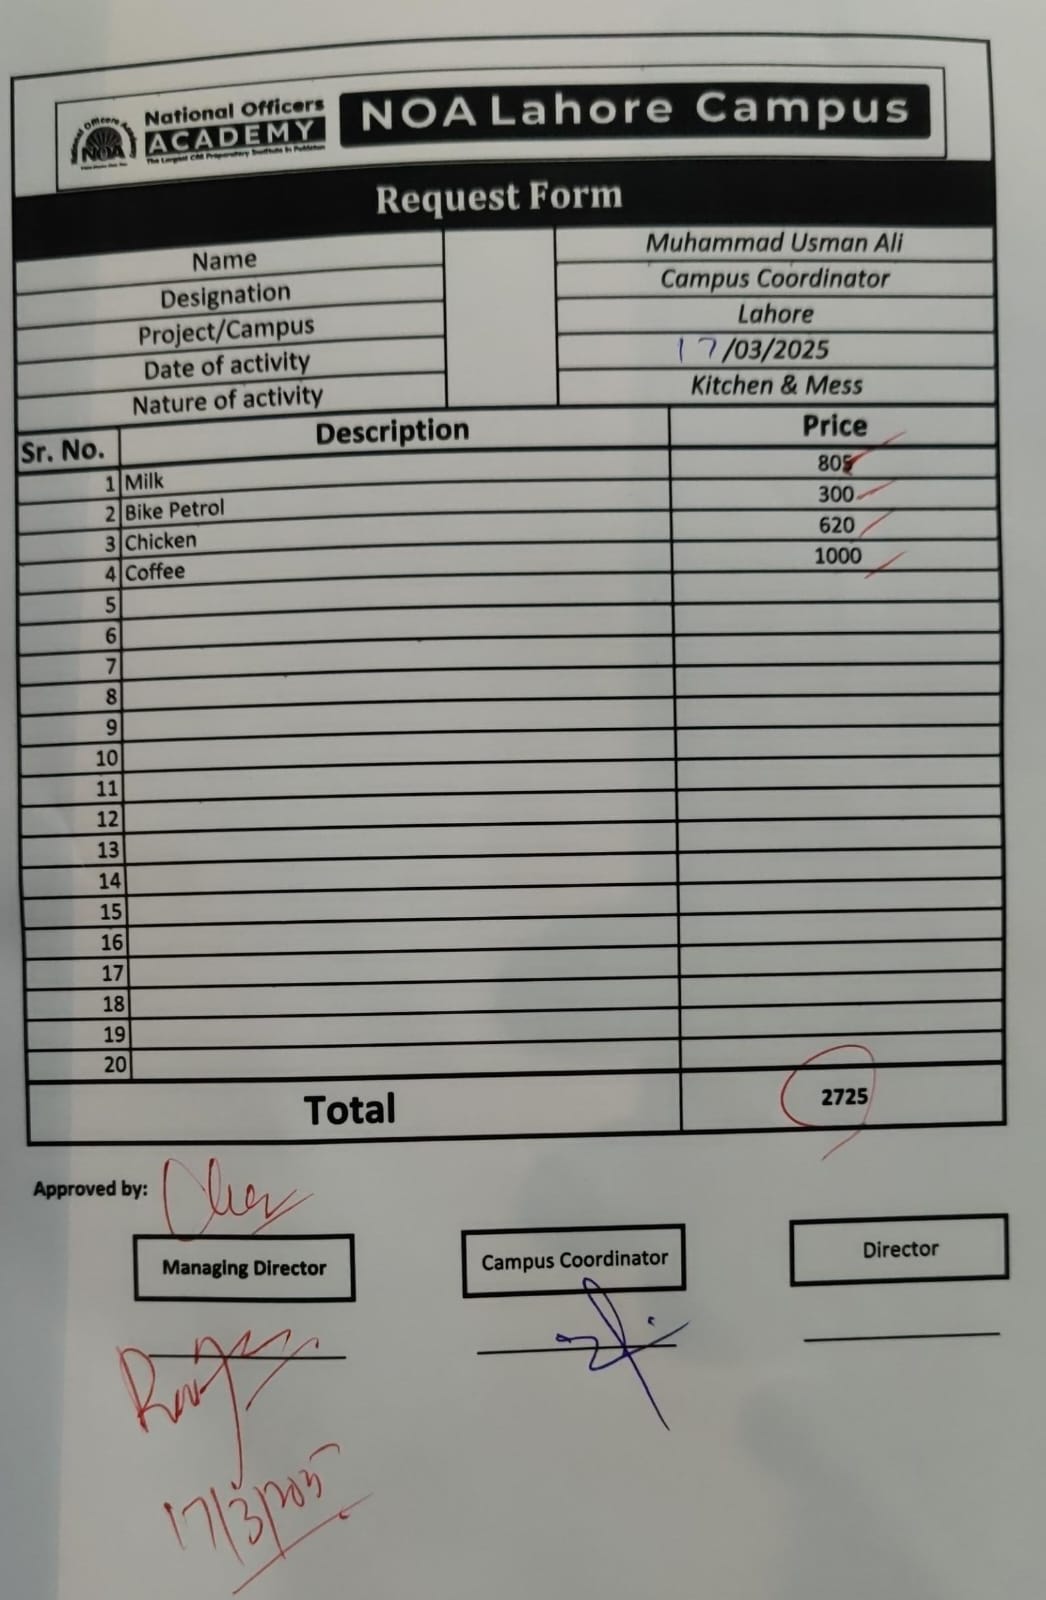 National Officers
ACADEMY
The Largest CSS Preparatory Institute in Pakistan
NOA
NOA Lahore Campus
Request Form
Name Muhammad Usman Ali
Designation Campus Coordinator
Project/Campus Lahore
Date of activity 17/03/2025
Nature of activity Kitchen & Mess
Sr. No. Description Price
1 Milk 805
2 Bike Petrol 300
3 Chicken 620
4 Coffee 1000
5
6
7
8
9
10
11
12
13
14
15
16
17
18
19
20
Total 2725
Approved by:
Managing Director Campus Coordinator Director
17/3/2025